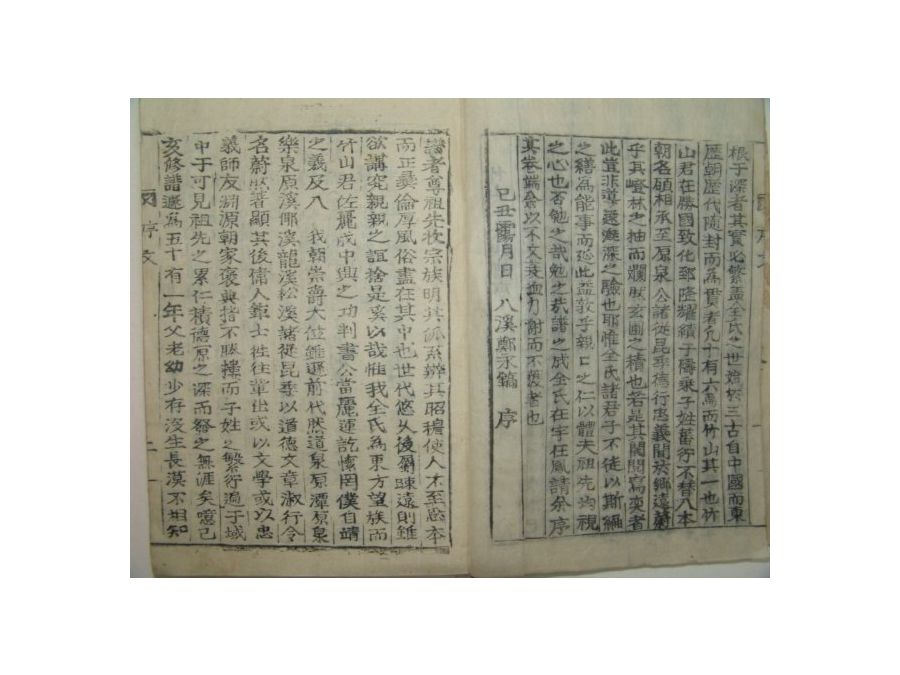 根于深者其實必繁盖全氏之世
歷朝歷代隨封而為貫者凡十有六焉而竹山其一也竹
山君在勝國致化郅隆耀績彛乘子姓蕃衍不替八本
朝名碩相承至原泉公諸從昆季德行忠義聞於鄉遠蔚
乎其嶝林之抽而爛然玄圃之積也若是其閎閱寫奕者
此豈非導遠濬深之驗也耶惟全氏諸君子不徒以斯編
之繕為能事而恐此益敦乎親之仁以體夫祖先均視
之心也否勉之哉勉之哉譜之成全氏在宇任鳳請余序
其卷端余以不文
力謝而不獲者也
己丑陽月日 八溪鄭永鎬 序
譜者尊祖先收宗族明其派系辨其昭穆使人不至忘本
而正彜倫厚風俗盡在其中也世代悠久後屬踈遠則雖
欲講究親親之誼捨是奚以哉惟我全氏為東方望族而
竹山君佐麗成中興之功判書公當麗運訖懷罔僕自靖
之義及八 我朝崇爵大位雖遜前代然道泉原潭原泉
樂泉原溪倻溪龍溪松溪諸從昆季以道德文章淑行令
名蔚然者顯其後偉人鉅士徃徃輩出或以文學或以忠
義師友淵源朝家褒典指不勝摟而子姓之繁衍遍于域
中于可見祖先之累仁積德原之深而發之無涯矣噫己
亥修譜遂為五十有一年父老幼少存沒生長漠不相知
序文
二